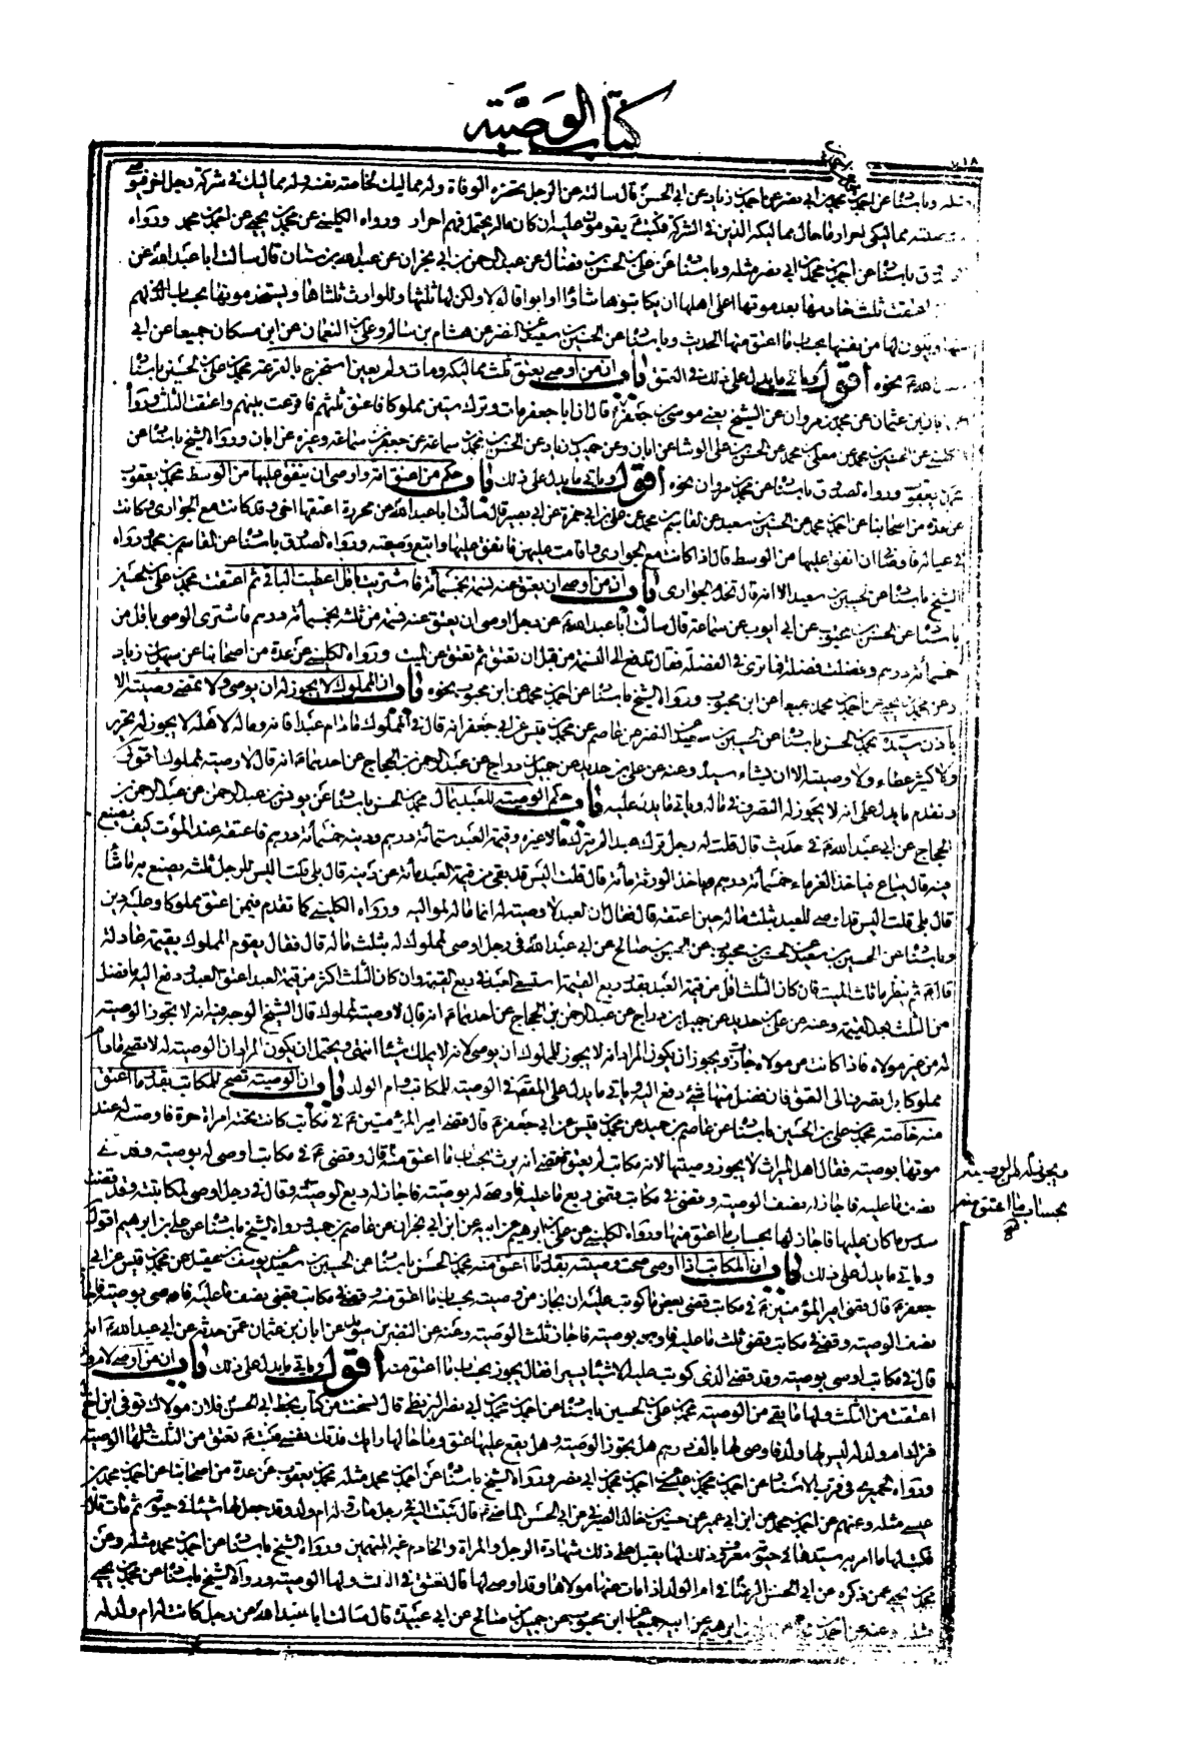 كتاب الوصية
مثله وباسناده عن احمد بن محمد بن ابي نصر عن احمد بن زياد عن ابي الحسن قال سالته عن الرجل تحضره الوفاة وله مماليك لخاصة نفسه وله مماليك في شركة رجل اخر فيوصي
وصيته مماليكي احرار ما حال مماليكه الذين في الشركة فكتب يقومون عليه ان كان ماله يحتمل فهم احرار ورواه الكليني عن محمد بن يحيى عن احمد بن محمد ورواه
باسناده عن احمد بن محمد بن ابي نصر مثله وباسناده عن علي بن الحسن بن فضال عن عبد الرحمن بن ابي نجران عن عبد الله بن سنان قال سالت ابا عبد الله عن
اعتقت ثلث خادمها بعد موتها اعلى اهلها ان يكاتبوها شاؤا او ابوا قال لا ولكن لها ثلثها وللوارث ثلثاها ويستخدمونها بحساب الذي لهم
منها ويكون لها من نفسها بحساب ما اعتق منها الحديث وباسناده عن الحسين بن سعيد عن النضر عن هشام بن سالم وعلي بن النعمان عن ابن مسكان جميعا عن ابي
نحوه اقول وياتي ما يدل على ذلك في العتق باب ان من اوصى بعتق ثلث مماليكه ومات ولم يعين استخرج بالقرعة محمد بن علي بن الحسين باسناده
ابان بن عثمان عن محمد بن مروان عن الشيخ يعني موسى بن جعفر قال ان ابا جعفر مات وترك ستين مملوكا فاعتق ثلثهم فاقرعت بينهم واعتقت الثلث ورواه
الكليني عن الحسين بن محمد عن معلى بن محمد عن الحسن بن علي الوشا عن ابان وعن حميد بن زياد عن الحسن بن محمد بن سماعة عن جعفر بن سماعة وغيره عن ابان ورواه الشيخ باسناده عن
محمد بن يعقوب ورواه الصدوق باسناده عن محمد بن مروان نحوه اقول وياتي ما يدل على ذلك باب حكم من اعتق امة واوصى ان ينفق عليها من الوسط محمد بن يعقوب
عن عدة من اصحابنا عن احمد بن محمد عن الحسين بن سعيد عن القاسم بن محمد عن علي بن ابي حمزة عن ابي بصير قال سالت ابا عبد الله عن محررة اعتقها اخي وقد كانت مع الجواري وكانت
في عياله فاوصاني ان انفق عليها من الوسط قال اذا كانت مع الجواري واقامت عليهن فانفق عليها واتبع وصيته ورواه الصدوق باسناده عن القاسم بن محمد ورواه
الشيخ باسناده عن الحسين بن سعيد الا انه قال تخدم الجواري باب ان من اوصى ان يعتق عنه نسمة بخمسمائة فاشتريت باقل اعطيت الباقي ثم اعتقت محمد بن علي بن الحسين
باسناده عن الحسن بن محبوب عن ابي ايوب عن سماعة قال سالت ابا عبد الله عن رجل اوصى ان يعتق عنه نسمة من ثلثه بخمسمائة درهم فاشترى الوصي باقل من
خمسمائة درهم وفضلت فضلة فما ترى في الفضلة فقال تدفع الى النسمة من قبل ان تعتق ثم تعتق عن الميت ورواه الكليني عن عدة من اصحابنا عن سهل بن زياد
وعن محمد بن يحيى عن احمد بن محمد جميعا عن ابن محبوب ورواه الشيخ باسناده عن احمد بن محمد عن ابن محبوب نحوه باب ان المملوك لا يجوز له ان يوصي ولا تمضى وصيته الا
باذن سيده محمد بن الحسن باسناده عن الحسين بن سعيد عن النضر عن عاصم عن محمد بن قيس عن ابي جعفر انه قال في المملوك ما دام عبدا فانه وماله لاهله لا يجوز له تحرير
ولا كثير عطاء ولا وصية الا ان يشاء سيده وعنه عن علي بن حديد عن جميل بن دراج عن عبد الرحمن بن الحجاج عن احدهما انه قال لا وصية لمملوك اقول
وتقدم ما يدل على انه لا يجوز له التصرف في ماله وياتي ما يدل عليه باب حكم الوصية للعبد بمال محمد بن الحسن باسناده عن يونس بن عبد الرحمن عن عبد الرحمن بن
الحجاج عن ابي عبد الله في حديث قال قلت له رجل ترك عبدا لم يترك مالا غيره وقيمة العبد ستمائة درهم ودينه خمسمائة درهم فاعتقه عند الموت كيف يصنع
فيه قال يباع فياخذ الغرماء خمسمائة درهم وياخذ الورثة مائة قال قلت اليس قد بقي من قيمة العبد مائة عن دينه قال بلى قلت اليس للرجل ثلثه يصنع به ما شاء
قال بلى قلت اليس قد اوصى للعبد بثلث ماله حين اعتقه قال فقال ان العبد لا وصية له انما ماله لمواليه ورواه الكليني كما تقدم فيمن اعتق مملوكا وعليه دين
وباسناده عن الحسين بن سعيد عن الحسن بن محبوب عن الحسن بن صالح عن ابي عبد الله في رجل اوصى لمملوك له بثلث ماله قال فقال يقوم المملوك بقيمة عادلة
قال ثم ينظر ما ثلث الميت فان كان الثلث اقل من قيمة العبد بقدر ربع القيمة استسعى العبد في ربع القيمة وان كان الثلث اكثر من قيمة العبد اعتق العبد ودفع اليه ما فضل
من الثلث بعد القيمة وعنه عن علي بن حديد عن جميل بن دراج عن عبد الرحمن بن الحجاج عن احدهما انه قال لا وصية لمملوك قال الشيخ الوجه فيه انه لا يجوز الوصية
له من غير مولاه فاذا كانت من مولاه جاز ويجوز ان يكون المراد انه لا يجوز للمملوك ان يوصي لانه لا يملك شيئا انتهى ويحتمل ان يكون المراد ان الوصية له لا تصح ما دام
مملوكا بل تصرف الى العتق فان فضل منها شيء دفع اليه وياتي ما يدل على المقصود في الوصية للمكاتب وام الولد باب ان الوصية تصح للمكاتب بقدر ما اعتق
منه خاصة محمد بن علي بن الحسين باسناده عن عاصم بن حميد عن محمد بن قيس عن ابي جعفر قال قضى امير المؤمنين في مكاتب كانت تحته امراة حرة فاوصت له عند
موتها بوصية فقال اهل الميراث لا يجوز وصيتها لانه مكاتب لم يعتق فقضى انه يرث بحساب ما اعتق منه قال وقضى في مكاتب اوصى له بوصية وقد قضى
ويجوز له من الوصية
بحساب ما اعتق منه
نصف ما عليه فاجاز له نصف الوصية وقضى في مكاتب قضى ربع ما عليه فاوصى له بوصية فاجاز له ربع الوصية وقال في رجل اوصى لمكاتبته وقد قضت
سدس ما كان عليها فاجاز لها بحساب ما اعتق منها ورواه الكليني عن علي بن ابراهيم عن ابيه عن ابن ابي نجران عن عاصم بن حميد ورواه الشيخ باسناده عن علي بن ابراهيم اقول
وياتي ما يدل على ذلك باب ان المكاتب اذا اوصى صحت وصيته بقدر ما اعتق منه محمد بن الحسن باسناده عن الحسين بن سعيد عن يوسف بن عقيل عن محمد بن قيس عن ابي
جعفر قال قضى امير المؤمنين في مكاتب قضى بعض ما كوتب عليه ان يجاز من وصيته بحساب ما اعتق منه وقضى في مكاتب قضى نصف ما عليه فاوصى بوصية فاجاز
نصف الوصية وقضى في مكاتب قضى ثلث ما عليه فاوصى بوصية فاجاز ثلث الوصية وعنه عن النضر بن سويد عن ابان بن عثمان عمن حدثه عن ابي عبد الله انه
قال في مكاتب اوصى بوصية وقد قضى الذي كوتب عليه الا شيئا يسيرا فقال يجوز بحساب ما اعتق منه اقول وياتي ما يدل على ذلك باب ان من اوصى لام ولده
اعتقت من الثلث ولها ما بقي من الوصية محمد بن علي بن الحسين باسناده عن احمد بن محمد بن ابي نصر البزنطي قال نسخت من كتاب بخط ابي الحسن فلان مولاك توفى ابن اخ
له وترك ام ولد له ليس لها ولد فاوصى لها بالف درهم هل يجوز الوصية وهل يقع عليها عتق وما حالها رايك فدتك نفسي فكتب تعتق من الثلث ولها الوصية
ورواه الحميري في قرب الاسناد عن احمد بن محمد بن عيسى عن احمد بن محمد بن ابي نصر ورواه الشيخ باسناده عن احمد بن محمد مثله محمد بن يعقوب عن عدة من اصحابنا عن احمد بن محمد بن
عيسى مثله وعنهم عن احمد بن محمد عن ابن ابي عمير عن حسين بن خالد الصيرفي عن ابي الحسن الماضي قال كتبت اليه في رجل مات وله ام ولد وقد جعل لها شيئا في حياته ثم مات قال
فكتب لها ما امر به سيدها في حياته معروف ذلك لها يقبل على ذلك شهادة الرجل والمراة والخادم غير المتهمين ورواه الشيخ باسناده عن احمد بن محمد مثله وعن
محمد بن يحيى عمن ذكره عن ابي الحسن الرضا في ام الولد اذا مات عنها مولاها وقد اوصى لها قال تعتق في الثلث ولها الوصية ورواه الشيخ باسناده عن محمد بن يحيى
مثله وعنه عن احمد بن محمد وعن علي بن ابراهيم عن ابيه جميعا عن ابن محبوب عن جميل بن صالح عن ابي عبيدة قال سالت ابا عبد الله عن رجل كانت له ام ولد له